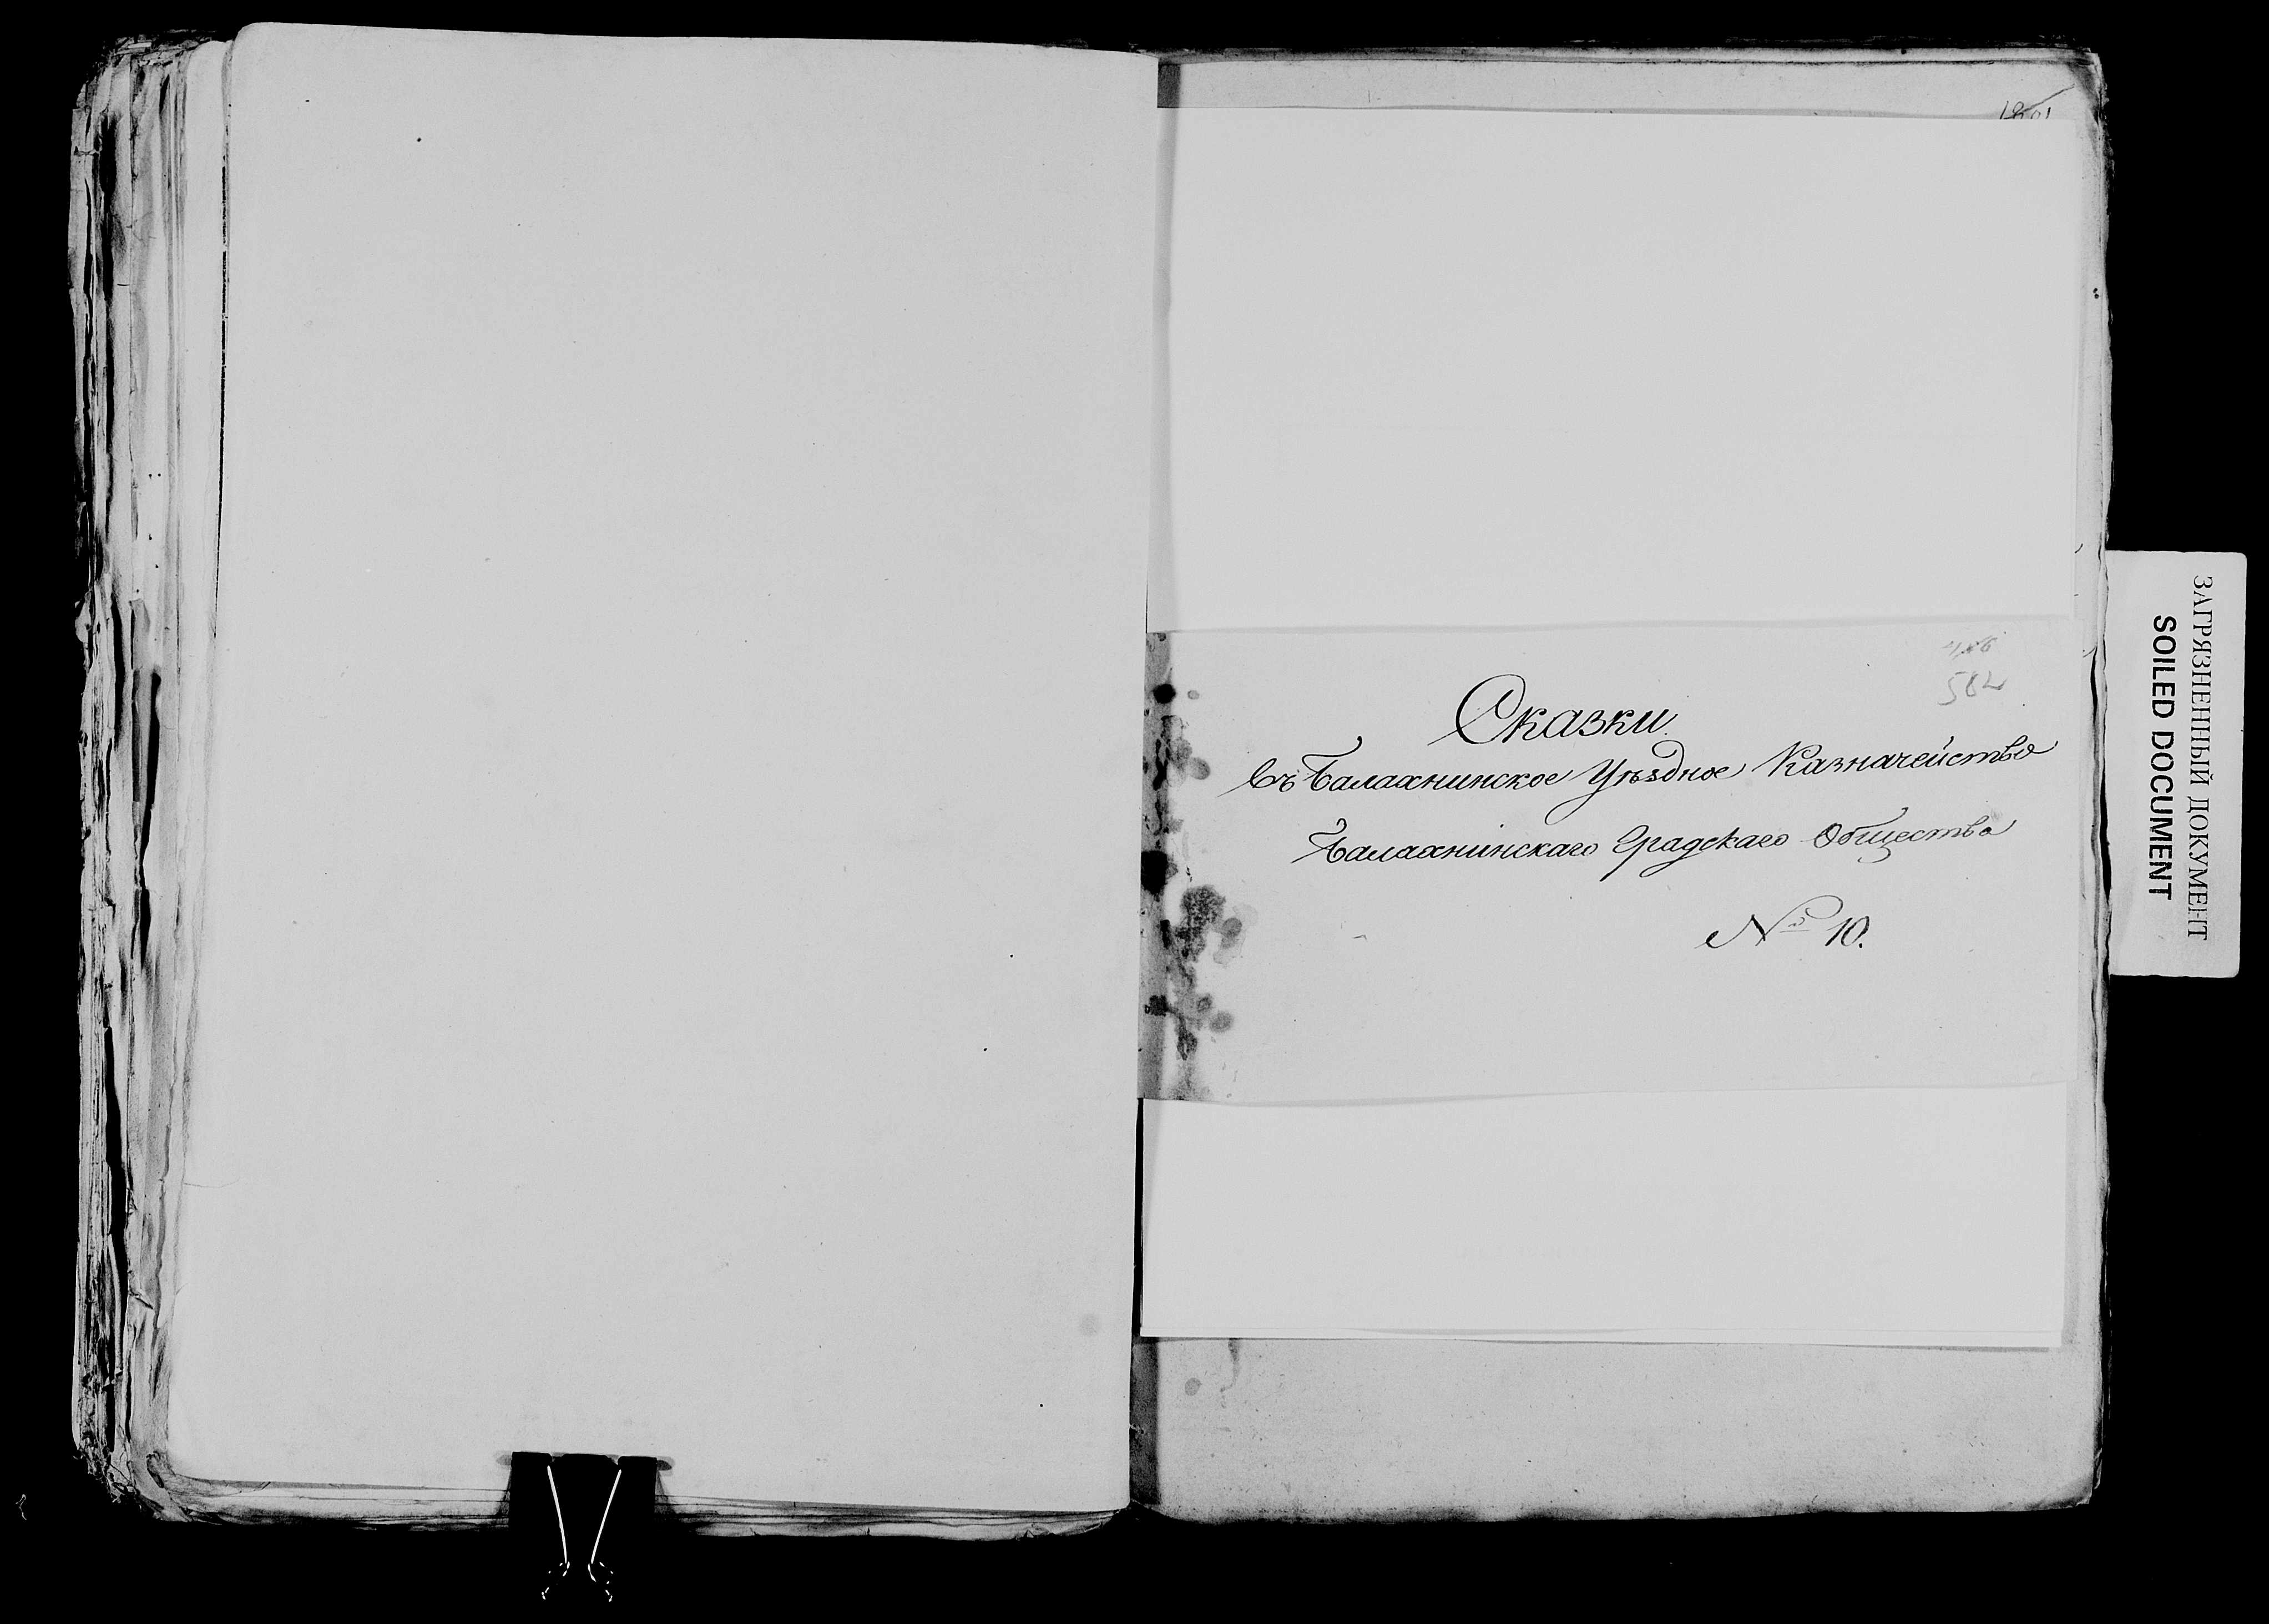 582
Сказки
Въ Балахнинское Уѣздное Казначейство
Балахнинскаго Градскаго Общества
№ 10.
ЗАГРЯЗНЕННЫЙ ДОКУМЕНТ
SOILED DOCUMENT